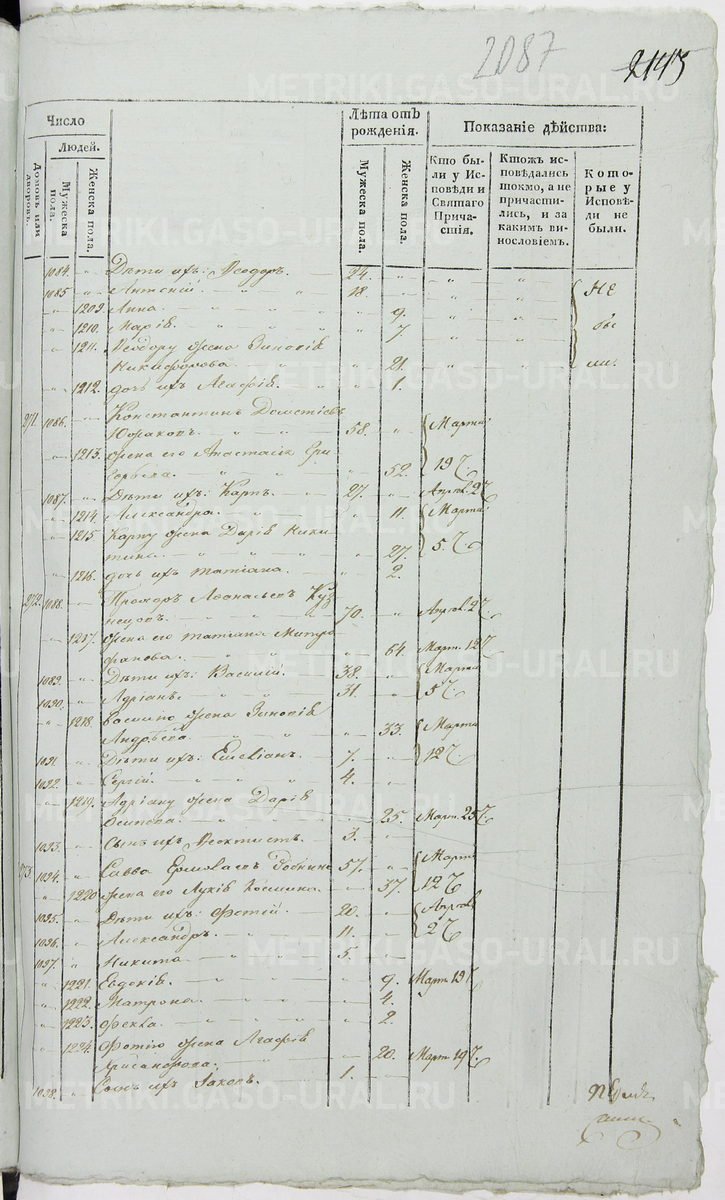 2087
2113
Число
Людей.
Домовъ или дворовъ.
Мужеска пола.
Женска пола.
Лѣта отъ рожденія.
Мужеска пола.
Женска пола.
Показаніе дѣйства:
Кто бы-
ли у Ис-
повѣди и
Святаго
Прича-
стія.
Ктожъ ис-
повѣдались
токмо, а не
причасти-
лись, и за
какимъ ви-
нословіемъ.
Кото-
рые у
Исповѣ-
ди не
были.
1084. Дѣти ихъ: Ѳеодоръ. 24.
1085 18. Не
1209. Анна. 9.
1210. Марія. 7. бы
1211. Ѳеодору жена Зиновія
Никифорова. 21. ли.
1212. дочь ихъ Агафія. 1.
271. 1086. Константинъ
58. Марта
1213. жена его Анастасіа Гри
горьева. 52. 19
1087. Дѣти ихъ: Карпъ. 27. Апрѣл. 2
1214. Александра. 11. Марта
1215 Карпу жена Дарія Ники
тина. 27. 5.
1216. дочь ихъ Татіана. 2.
272. 1088. Прохоръ Аѳанасьевъ Куз
нецовъ. 70. Апрѣл. 2
1217. жена его Татіана Митро
фанова. 64. Март. 12
1089. Дѣти ихъ: Василій. 38. Марта
1090. Адріанъ. 31. 5
1218. Василью жена Зиновія
Андрѣева. 33. Марта
1091. Дѣти ихъ: Емеліанъ. 7. 12
1092. Сергій. 4.
1219. Адріану жена Дарія
Осипова. 25. Март. 25
1093. Сынъ ихъ Ѳеоктистъ. 3.
273. 1094. Савва Ермолаевъ 57. Марта
1220 жена его Лукія Козмина. 37. 12
1095. Дѣти ихъ: Фотій. 20. Апрѣл
1096. Александръ. 11. 2
1097. Никита 5.
1221. Евдокія. 9. Март. 19
1222. Матрона. 4.
1223. Ѳекла. 2.
1224. Фотію жена Агафія
20. Март. 19
1098. Сынъ ихъ Іаковъ. 1.